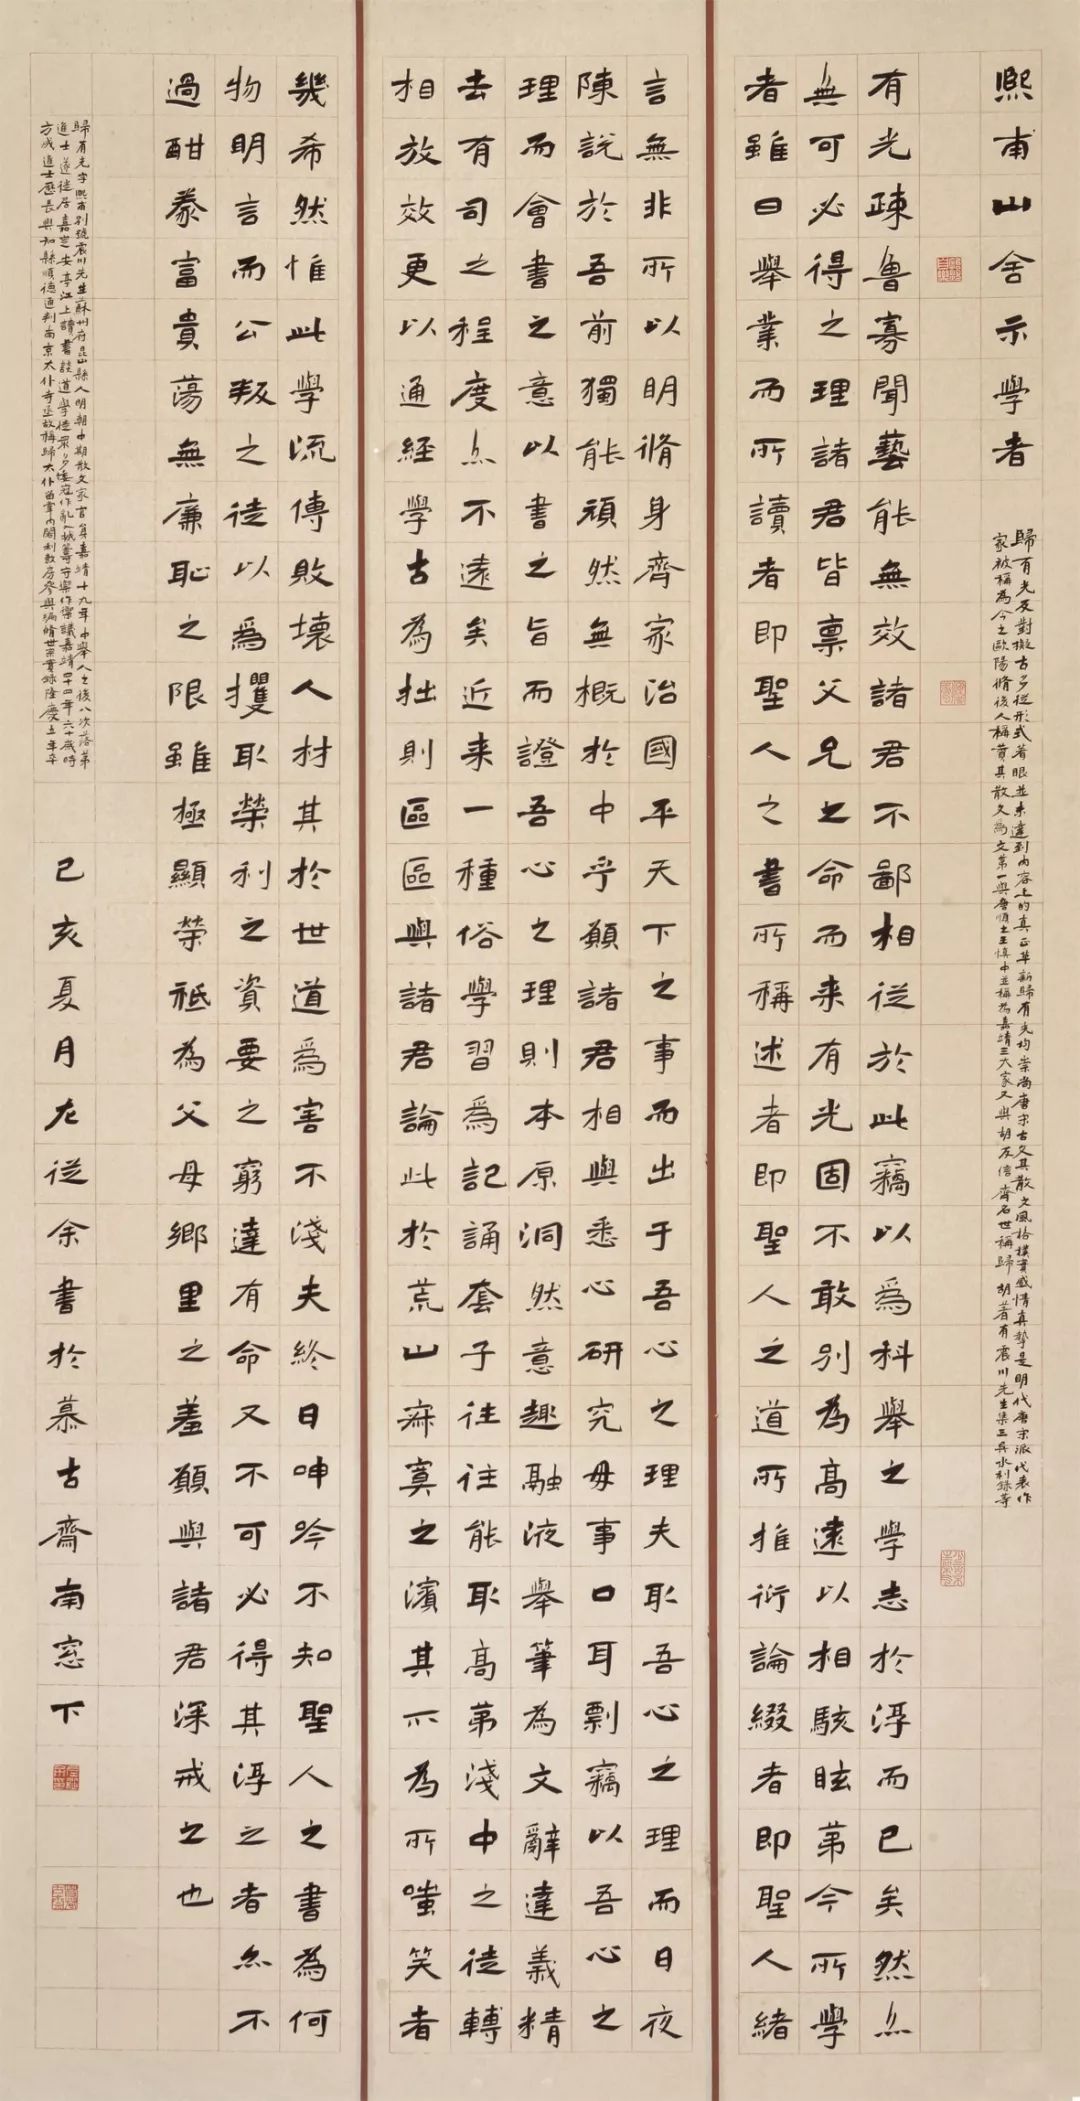 熙甫山舍示學者
歸有光反對擬古多從形式着眼並未達到內容上的真正革新歸有光均崇尚唐宋古文其散文風格樸實感情真摯是明代唐宋派代表作
家被稱為今之歐陽脩後人稱賛其散文為文第一與唐順之王慎中並稱為嘉靖三大家又與胡友信齊名世稱歸胡著有震川先生集三吳水利錄等
有光疎魯寡聞藝能無效諸君不鄙相從於此竊以爲科舉之學志於淂而已矣然亦
無可必得之理諸君皆禀父兄之命而来有光固不敢别為髙遠以相駭眩苐今所學
者雖曰舉業而所讀者即聖人之書所稱述者即聖人之道所推衍論綴者即聖人緒
言無非所以明脩身齊家治國平天下之事而出于吾心之理夫取吾心之理而日夜
陳說於吾前獨能頑然無概於中乎願諸君相與悉心研究毋事口耳剽竊以吾心之
理而會書之意以書之旨而證吾心之理則本原洞然意趣融液舉筆為文辭達義精
去有司之程度亦不遠矣近来一種俗學習爲記誦套子往往能取髙苐淺中之徒轉
相放效更以通經學古為拙則區區與諸君論此於荒山寂寞之濱其不為所嗤笑者
幾希然惟此學流傳敗壞人材其於世道爲害不淺夫終日呻吟不知聖人之書為何
物明言而公叛之徒以爲攫取榮利之資要之窮達有命又不可必得其淂之者亦不
過酣豢富貴蕩無廉恥之限雖極顯榮祗為父母鄉里之羞願與諸君深戒之也
歸有光字熙甫别號震川先生蘇州府崑山縣人明朝中期散文家官員嘉靖十九年中舉人之後八次落苐
進士遂徙居嘉定安亭江上讀書談道學徒眾多倭寇作亂入城籌守禦作禦議嘉靖四十四年六十歲時
方成進士歷長興知縣順德通判南京太仆寺丞故稱歸太仆留掌內閣制敕房參與編脩世宗實錄隆慶五年卒
己亥夏月左從余書於慕古齋南窓下